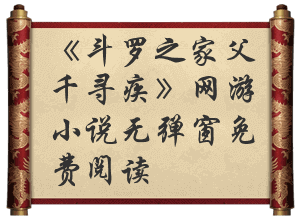 《斗罗之家父
千寻疾》网游
小说无弹窗免
费阅读